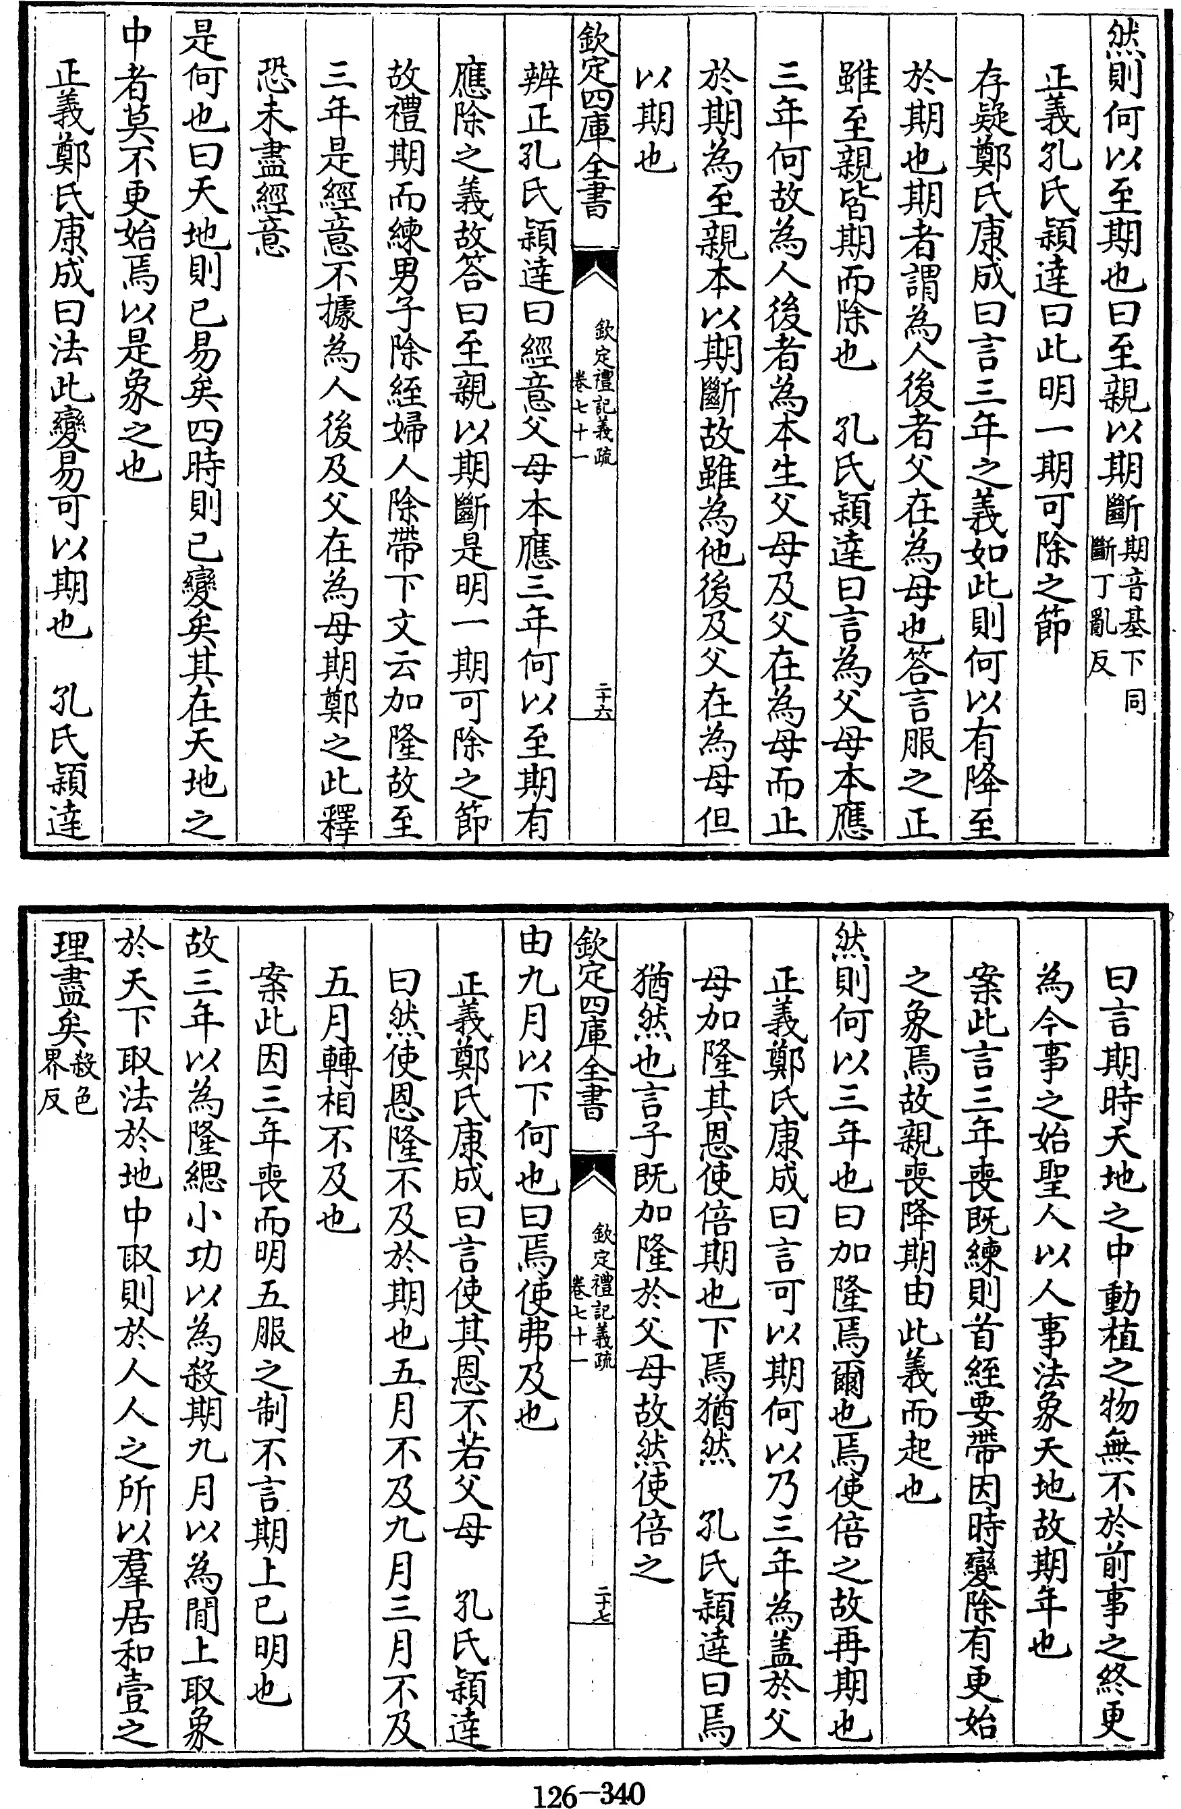 然則何以至期也曰至親以期斷期音基下同斷丁亂反
正義孔氏穎達曰此明一期可除之節
存疑鄭氏康成曰言三年之義如此則何以有降至
於期也期者謂為人後者父在為母也答言服之正
雖至親皆期而除也 孔氏穎達曰言為父母本應
三年何故為人後者為本生父母及父在為母而止
於期為至親本以期斷故雖為他後及父在為母但
以期也
欽定四庫全書 欽定禮記義疏 卷七十一 二十六
辨正孔氏穎達曰經意父母本應三年何以至期有
應除之義故答曰至親以期斷是明一期可除之節
故禮期而練男子除絰婦人除帶下文云加隆故至
三年是經意不據為人後及父在為母期鄭之此釋
恐未盡經意
是何也曰天地則已易矣四時則已變矣其在天地之
中者莫不更始焉以是象之也
正義鄭氏康成曰法此變易可以期也 孔氏穎達
曰言期時天地之中動植之物無不於前事之終更
為今事之始聖人以人事法象天地故期年也
案此言三年喪既練則首絰要帶因時變除有更始
之象焉故親喪降期由此義而起也
然則何以三年也曰加隆焉爾也焉使倍之故再期也
正義鄭氏康成曰言可以期何以乃三年為盖於父
母加隆其恩使倍期也下焉猶然 孔氏穎達曰焉
猶然也言子既加隆於父母故然使倍之
欽定四庫全書 欽定禮記義疏 卷七十一 二十七
由九月以下何也曰焉使弗及也
正義鄭氏康成曰言使其恩不若父母 孔氏穎達
曰然使恩隆不及於期也五月不及九月三月不及
五月轉相不及也
案此因三年喪而明五服之制不言期上已明也
故三年以為隆緦小功以為殺期九月以為間上取象
於天下取法於地中取則於人人之所以羣居和壹之
理盡矣殺色界反
126-340